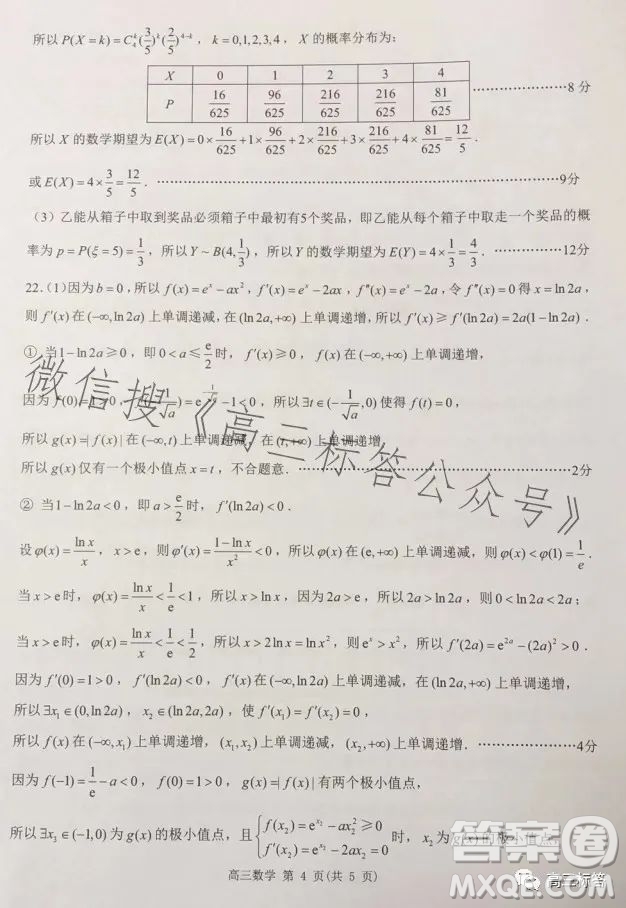 所以 P(X = k) = C₄ᵏ(3/5)ᵏ(2/5)⁴⁻ᵏ，k = 0,1,2,3,4，X 的概率分布为：
X 0 1 2 3 4
P 16/625 96/625 216/625 216/625 81/625 ……………………8 分
所以 X 的数学期望为 E(X) = 0×16/625 + 1×96/625 + 2×216/625 + 3×216/625 + 4×81/625 = 12/5．
或 E(X) = 4×3/5 = 12/5．……………………9分
（3）乙能从箱子中取到奖品必须箱子中最初有5个奖品，即乙能从每个箱子中取走一个奖品的概
率为 p = P(ξ = 5) = 1/3，所以 Y ~ B(4, 1/3)，所以 Y 的数学期望为 E(Y) = 4×1/3 = 4/3．……12分
22.（1）因为 b = 0，所以 f(x) = eˣ − ax²，f′(x) = eˣ − 2ax，f″(x) = eˣ − 2a，令 f″(x) = 0 得 x = ln2a，
则 f′(x) 在 (−∞, ln2a) 上单调递减，在 (ln2a, +∞) 上单调递增，所以 f′(x) ≥ f′(ln2a) = 2a(1 − ln2a)．
① 当 1 − ln2a ≥ 0，即 0 < a ≤ e/2 时，f′(x) ≥ 0，f(x) 在 (−∞, +∞) 上单调递增，
因为 f(0) = 1 > 0，
所以 ∃t ∈ (−1/√a, 0) 使得 f(t) = 0，
所以 g(x) = |f(x)| 在 (−∞, t) 上单调递减，在 (t, +∞) 上单调递增，
所以 g(x) 仅有一个极小值点 x = t，不合题意．……………………2分
② 当 1 − ln2a < 0，即 a > e/2 时，f′(ln2a) < 0．
设 φ(x) = lnx/x，x > e，则 φ′(x) = (1 − lnx)/x² < 0，所以 φ(x) 在 (e, +∞) 上单调递减，则 φ(x) < φ(1) = 1/e．
当 x > e 时，φ(x) = lnx/x < 1/e < 1，所以 x > lnx，因为 2a > e，所以 2a > ln2a，则 0 < ln2a < 2a；
当 x > e 时，φ(x) = lnx/x < 1/e < 1/2，所以 x > 2lnx = lnx²，则 eˣ > x²，所以 f′(2a) = e²ᵃ − (2a)² > 0．
因为 f′(0) = 1 > 0，f′(ln2a) < 0，f′(x) 在 (−∞, ln2a) 上单调递减，在 (ln2a, +∞) 上单调递增，
所以 ∃x₁ ∈ (0, ln2a)，x₂ ∈ (ln2a, 2a)，使 f′(x₁) = f′(x₂) = 0，
所以 f(x) 在 (−∞, x₁) 上单调递增，(x₁, x₂) 上单调递减，(x₂, +∞) 上单调递增．……………4分
因为 f(−1) = 1/e − a < 0，f(0) > 0，g(x) = |f(x)| 有两个极小值点，
所以 ∃x₃ ∈ (−1, 0) 为 g(x) 的极小值点，且 { f(x₂) = e^(x₂) − ax₂² ≥ 0
f′(x₂) = e^(x₂) − 2ax₂ = 0 时，x₂ 为 g(x) 的极小值点，
高三数学 第 4 页(共 5 页)
微信搜《高三标答公众号》
答案圈
MXQE.COM
高三标答